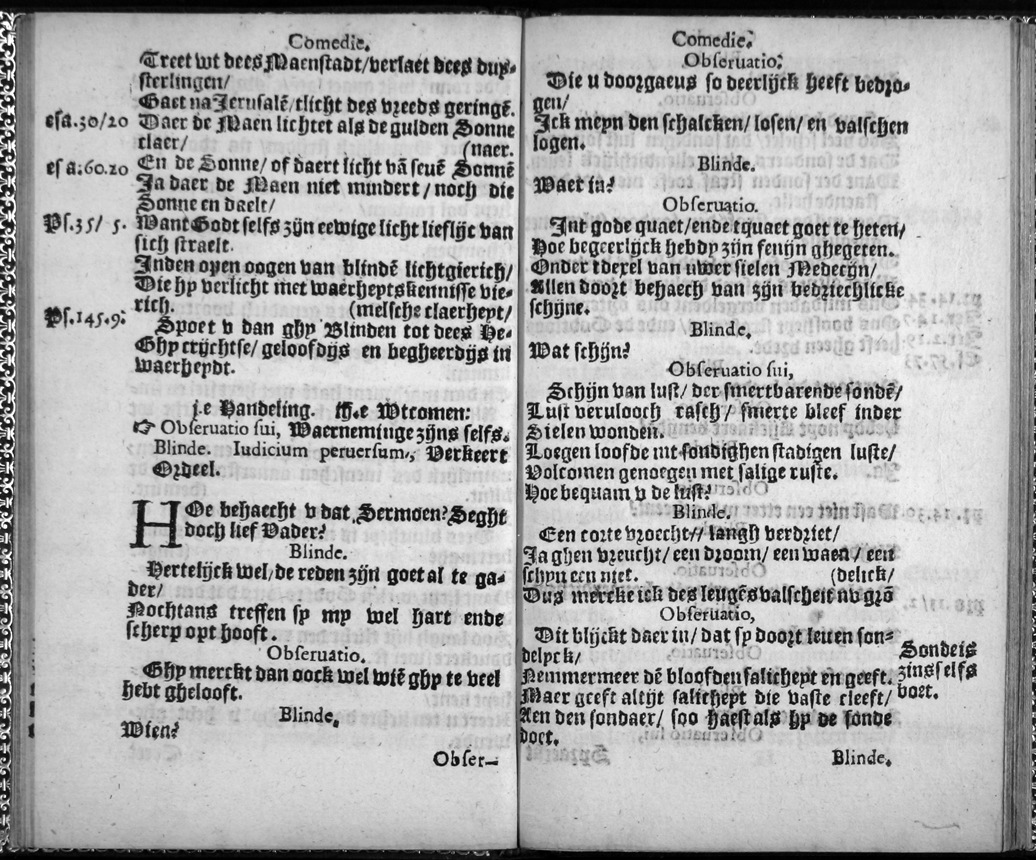 Comedie.
Treet wt dees Maenstadt/verlaet dees duy-
sterlingen/
Gaet na Jerusalē/tlicht des vreeds geringē.
esa.30/20 Daer de Maen lichtet als de gulden Sonne
claer/ (naer.
esa.60.20 En de Sonne/ of daert licht vā sevē Sonnē
Ja daer de Maen niet mindert/ noch die
Sonne en daelt/
Ps.35/ 5. Want Godt selfs zijn eewige licht lieflijc van
sich straelt.
Inden open oogen van blindē lichtgierich/
Die hy verlicht met waerheyts kennisse vie-
rich. (melsche claerheyt/
Ps.145.9. Spoet v dan ghy Blinden tot dees He-
Ghy crijchtse/ geloofdijs en begheerdijs in
waerheydt.
j.e Handeling. iij.e Wtcomen:
☞ Obseruatio sui, Waerneminge zijns selfs.
Blinde. Iudicium peruersum, Verkeert
Ordeel.
HOe behaecht v dat Sermoen? Seght
doch lief Vader?
Blinde.
Hertelijck wel/de reden zijn goet al te ga-
der/
Nochtans treffen sy my wel hart ende
scherp opt hooft.
Obseruatio.
Ghy merckt dan oock wel wiē ghy te veel
hebt ghelooft.
Blinde.
Wien?
Obser-
Comedie.
Obseruatio.
Die u doorgaens so deerlijck heeft bedro-
gen/
Ick meyn den schalcken/ losen/ en valschen
logen.
Blinde.
Waer in?
Obseruatio.
Int gode quaet/ende tquaet goet te heten/
Hoe begeerlijck hebdy zijn fenijn ghegeten.
Onder tdexel van uwer sielen Medecijn/
Allen doort behaech van zijn bedriechlicke
schijne.
Blinde.
Wat schijn?
Obseruatio sui,
Schijn van lust/ der smertbarende sondē/
Lust vervlooch rasch/ smerte bleef inder
Sielen wonden.
Loegen loofde int sondighen stadigen luste/
Volcomen genoegen met salige ruste.
Hoe bequam v de lust?
Blinde.
Een corte vroecht// langh verdriet/
Ja ghen vreucht/ een droom/ een waen/ een
schyn een niet. (delick/
Dus mercke ick des leugēs valscheit nv grō
Obseruatio,
Dit blijckt daer in/ dat sy doort leuen son-
delyck/
Nemmermeer dē bloofden salicheyt en geeft.
Maer geeft altijt salicheyt die vaste cleeft/
Aen den sondaer/ soo haest als hy de sonde
doet.
Sonde is
zijns selfs
boet.
Blinde.